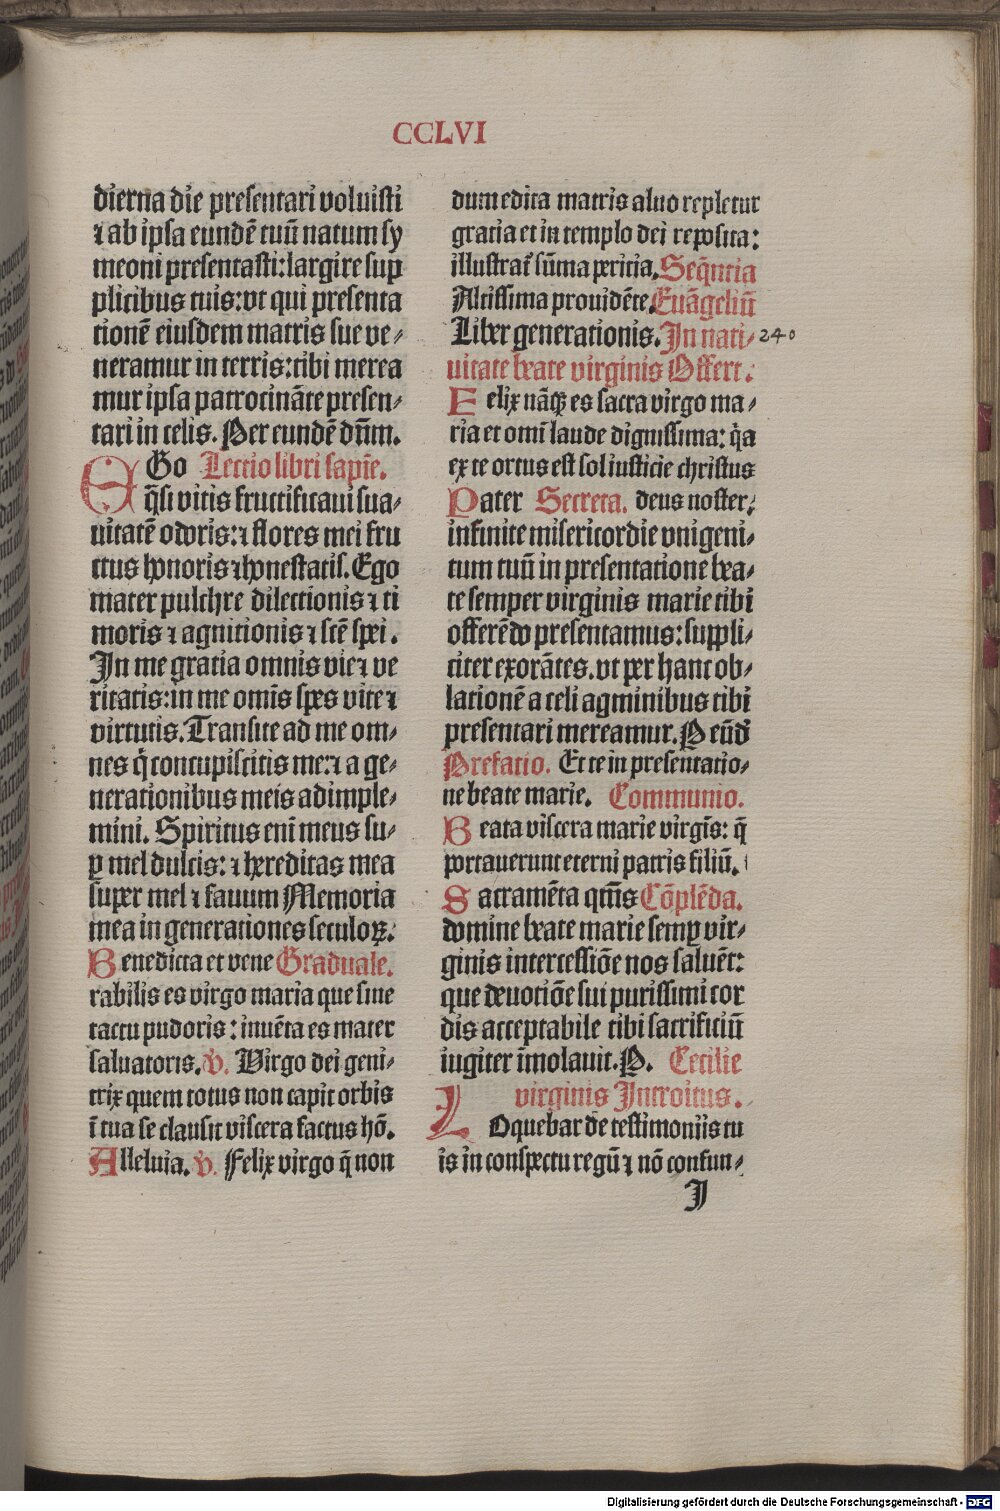 CCLVI
dierna die presentari voluisti
⁊ ab ipsa eundē tuū natum sy
meoni presentasti: largire sup
plicibus tuis: vt qui presenta
tionē eiusdem matris sue ve⸗
neramur in terris: tibi merea
mur ipsa patrocināte presen⸗
tari in celis. Per eundē dn̄m.
EGo Lectio libri sapiē.
q̄si vitis fructificaui sua⸗
uitatē odoris: ⁊ flores mei fru
ctus honoris ⁊ honestatis. Ego
mater pulchre dilectionis ⁊ ti
moris ⁊ agnitionis ⁊ scē spei.
In me gratia omnis vie ⁊ ve
ritatis: in me om̄is spes vite ⁊
virtutis. Transite ad me om⸗
nes q̄ concupiscitis me: ⁊ a ge⸗
nerationibus meis adimple⸗
mini. Spiritus eni meus su⸗
ꝑ mel dulcis: ⁊ hereditas mea
super mel ⁊ fauum Memoria
mea in generationes seculoꝝ.
Benedicta et vene Graduale.
rabilis es virgo maria que sine
tactu pudoris: inuēta es mater
saluatoris. v. Virgo dei geni⸗
trix quem totus non capit orbis
ī tua se clausit viscera factus hō.
Alleluia. v. Felix virgo q̄ non
dum edita matris aluo repletur
gratia et in templo dei reposita:
illustrat̄ sūma peritia. Seq̄ntia
Altissima prouidēte. Euāgeliū
Liber generationis. In nati⸗ 240
uitate beate virginis Offert.
Felix nāqꝫ es sacra virgo ma⸗
ria et omi laude dignissima: q̄a
ex te ortus est sol iusticie christus
Pater Secreta. deus noster:
infinite misericordie vnigeni⸗
tum tuū in presentatione bea⸗
te semper virginis marie tibi
offerēdo presentamus: suppli⸗
citer exorātes. vt per hanc ob⸗
lationē a celi agminibus tibi
presentari mereamur. P eūd̄
Prefatio. Et te in presentatio⸗
ne beate marie. Communio.
Beata viscera marie virgīs: q̄
portauerunt eterni patris filiū.
Sacramēta qm̄s Cōplēda.
domine beate marie semꝑ vir⸗
ginis intercessiōe nos saluēt:
que deuotiōe sui purissimi cor
dis acceptabile tibi sacrificiū
iugiter īmolauit. P. Cecilie
virginis Introitus.
LOquebar de testimoniis tu
is in conspectu regū ⁊ nō confun⸗
I
Digitalisierung gefördert durch die Deutsche Forschungsgemeinschaft - DFG